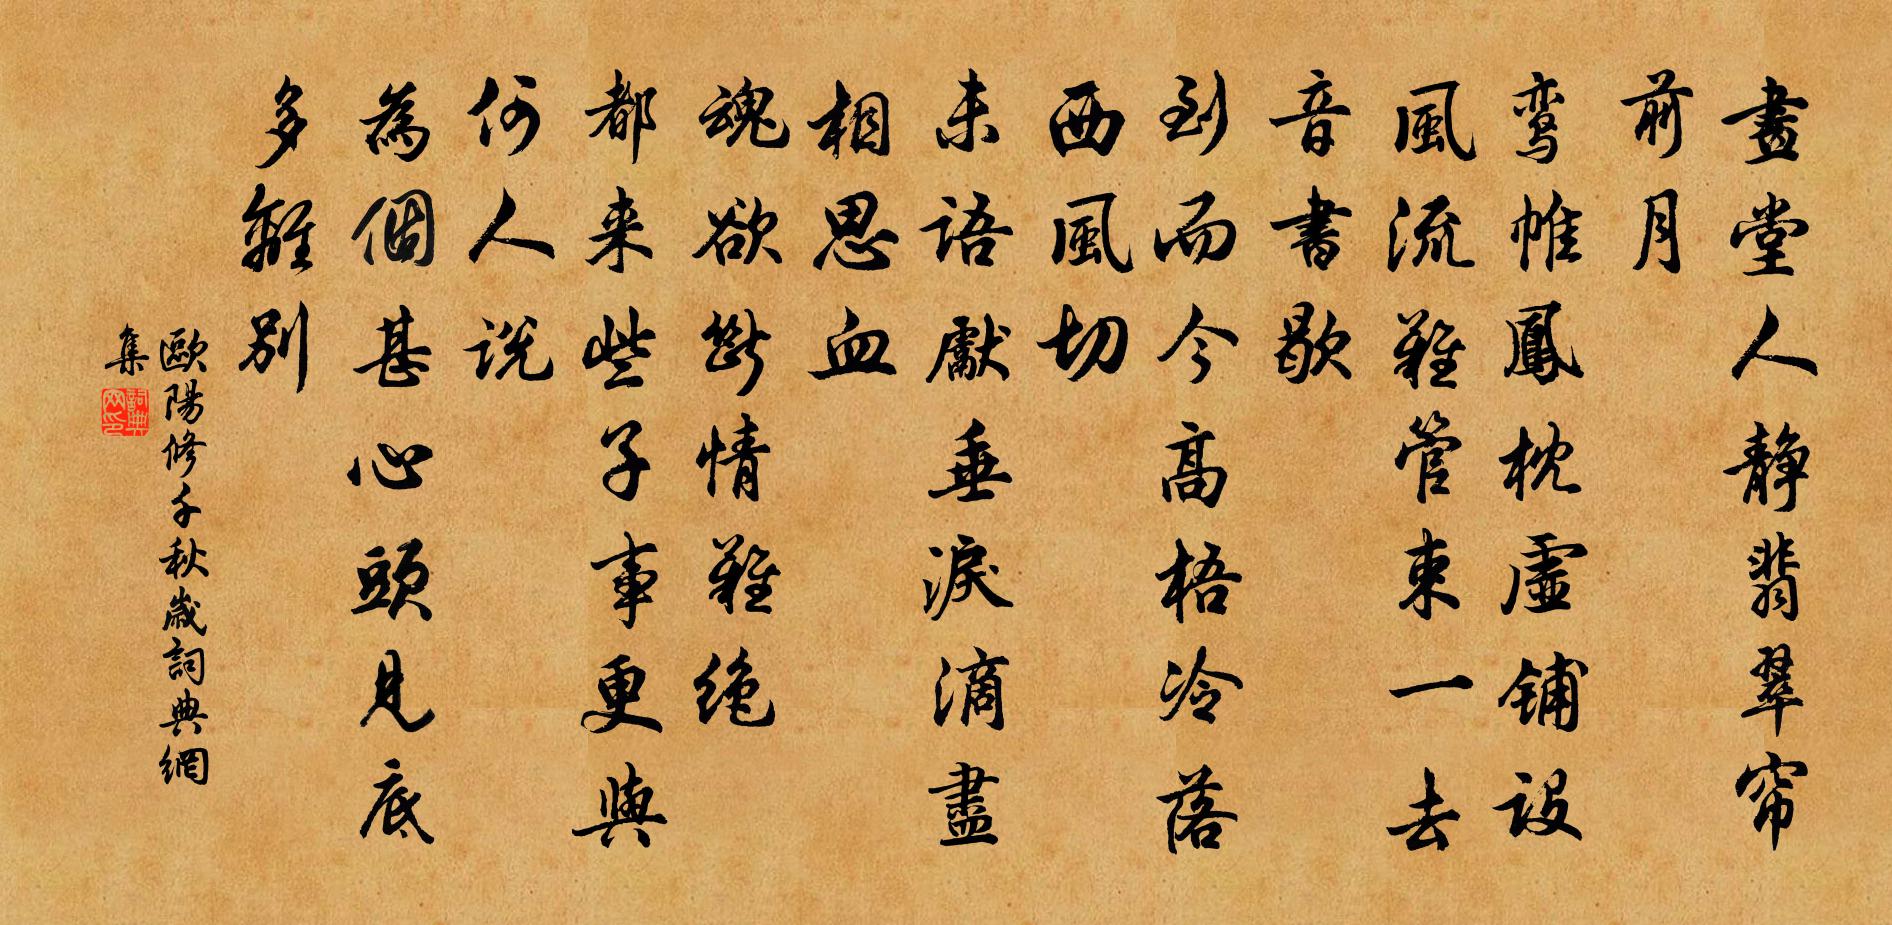 畫堂人静翡翠帘
前月
鸾帷鳳枕虚铺設
風流難管束一去
音書歇
到而今高梧冷落
西風切
未語獻垂淚滴盡
相思血
魂欲斷情難絶
都来些子事更與
何人説
為個甚心頭見底
多離別
歐陽修千秋歲詞典網
集
詞典
网印